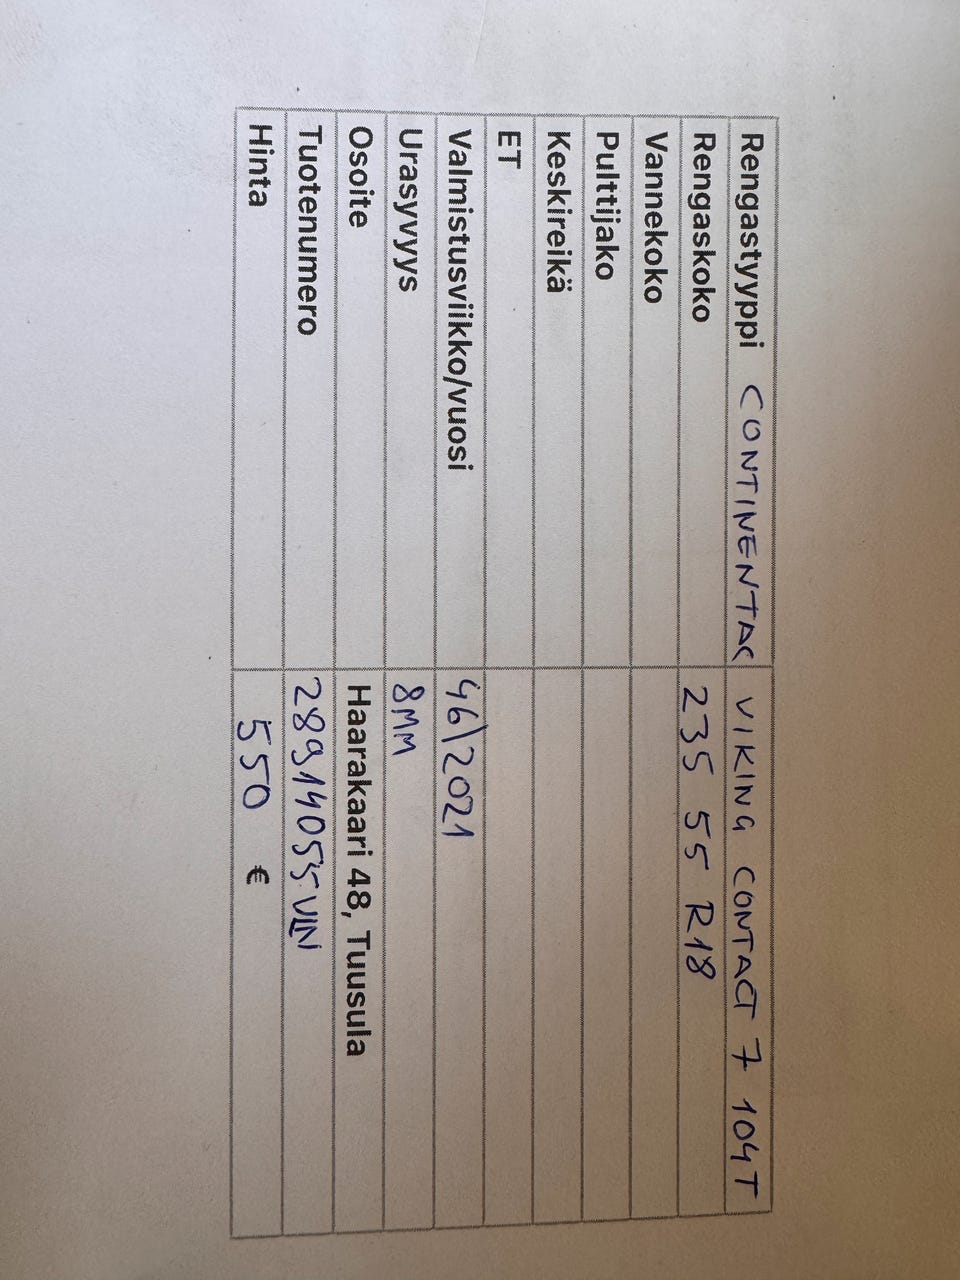 Rengastyyppi CONTINENTAL VIKING CONTACT 7 104T
Rengaskoko 235 55 R18
Vannekoko
Pulttijako
Keskireikä
ET
Valmistusviikko/vuosi 46\2021
Urasyvyys 8MM
Osoite Haarakaari 48, Tuusula
Tuotenumero 28914055VIN
Hinta 550 €